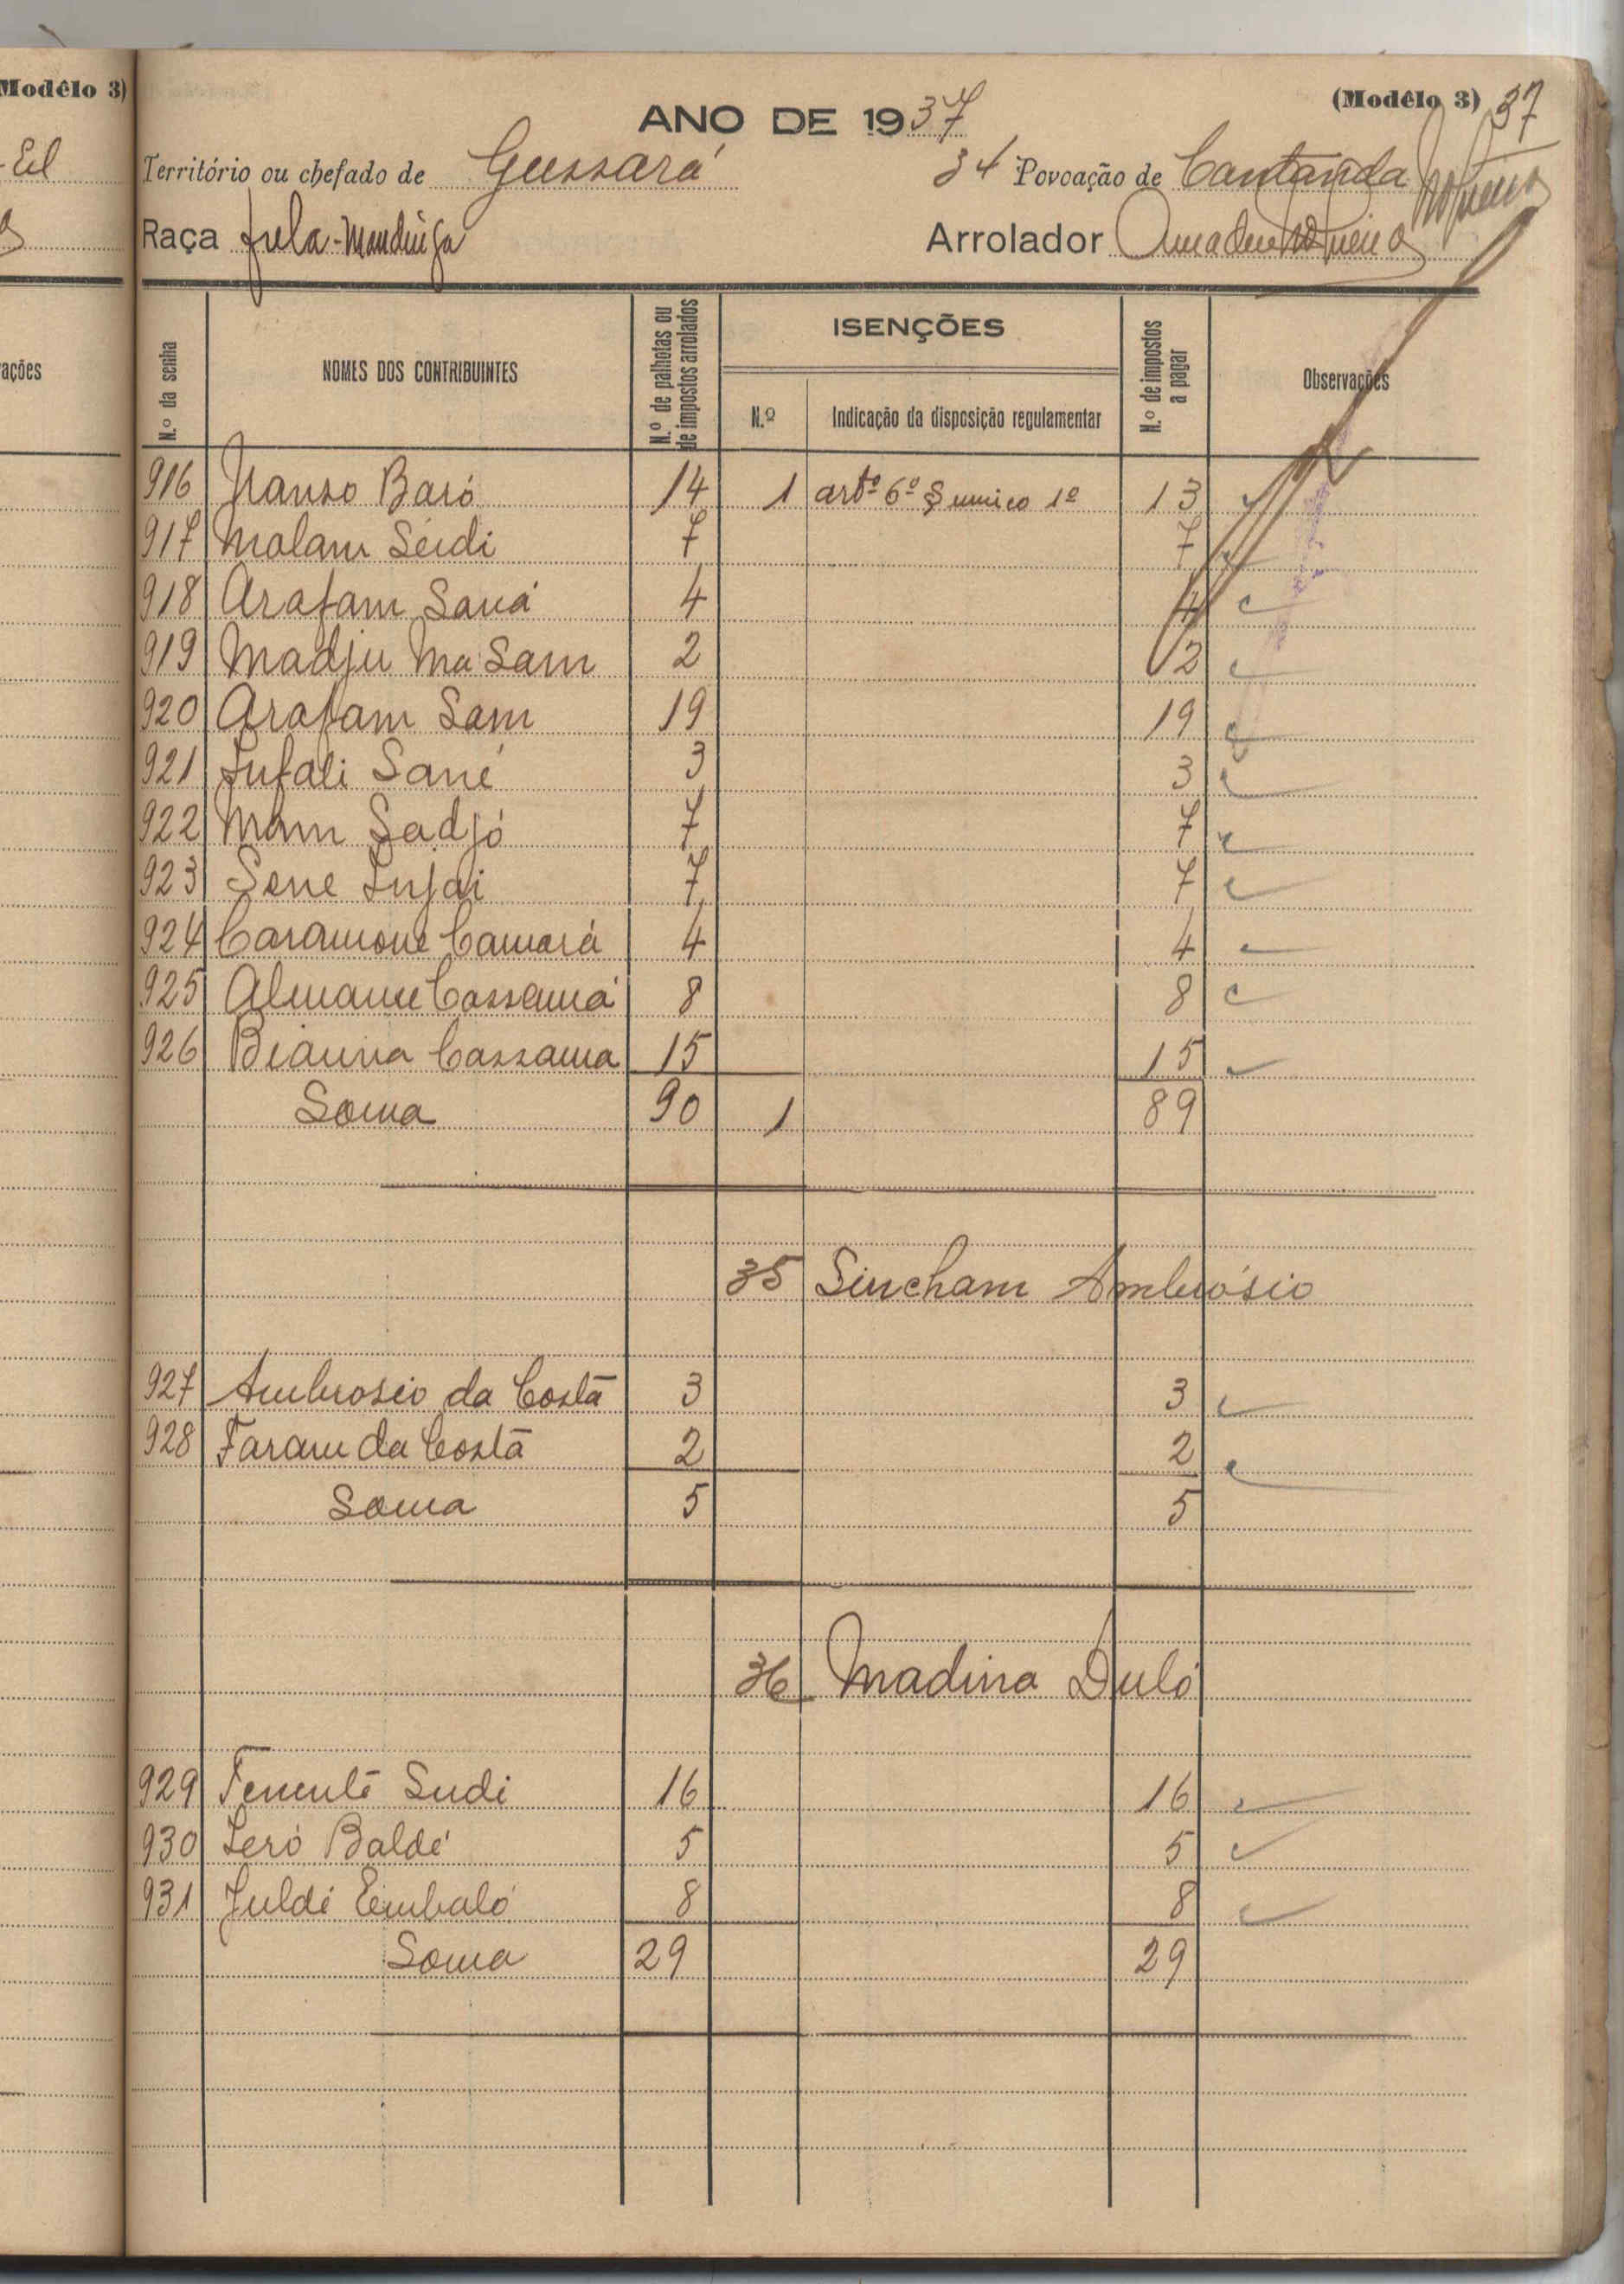 Modêlo 3)
(Modêlo 3) 37
ANO DE 1937
Território ou chefado de Gussará 34 Povoação de Cantanda
Raça fula-Mandinga Arrolador Amadeu Nogueira
ações
N.º da senha
NOMES DOS CONTRIBUINTES
N.º de palhotas ou de impostos arrolados
ISENÇÕES
N.º
Indicação da disposição regulamentar
N.º de impostos a pagar
Observações
916 Nanso Baió 14 1 artº 6º § unico 1º 13
917 Malam Seidi 7 7
918 Arafam Saná 4 4
919 Madju Ma Sam 2 2
920 Arafam Sam 19 19
921 Lufali Sané 3 3
922 Mam Sadjó 7 7
923 Sene Injai 7 7
924 Caramone Camará 4 4
925 Almame Cassamá 8 8
926 Biauna Cassama 15 15
Soma 90 1 89
35 Sincham Ambrósio
927 Ambrosio da Costa 3 3
928 Faram da Costa 2 2
Soma 5 5
36 Madina Duló
929 Sudi 16 16
930 Seró Baldé 5 5
931 Juldé Embaló 8 8
Soma 29 29